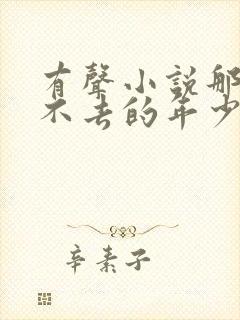 有聲小說那
不去的年少
辛素子